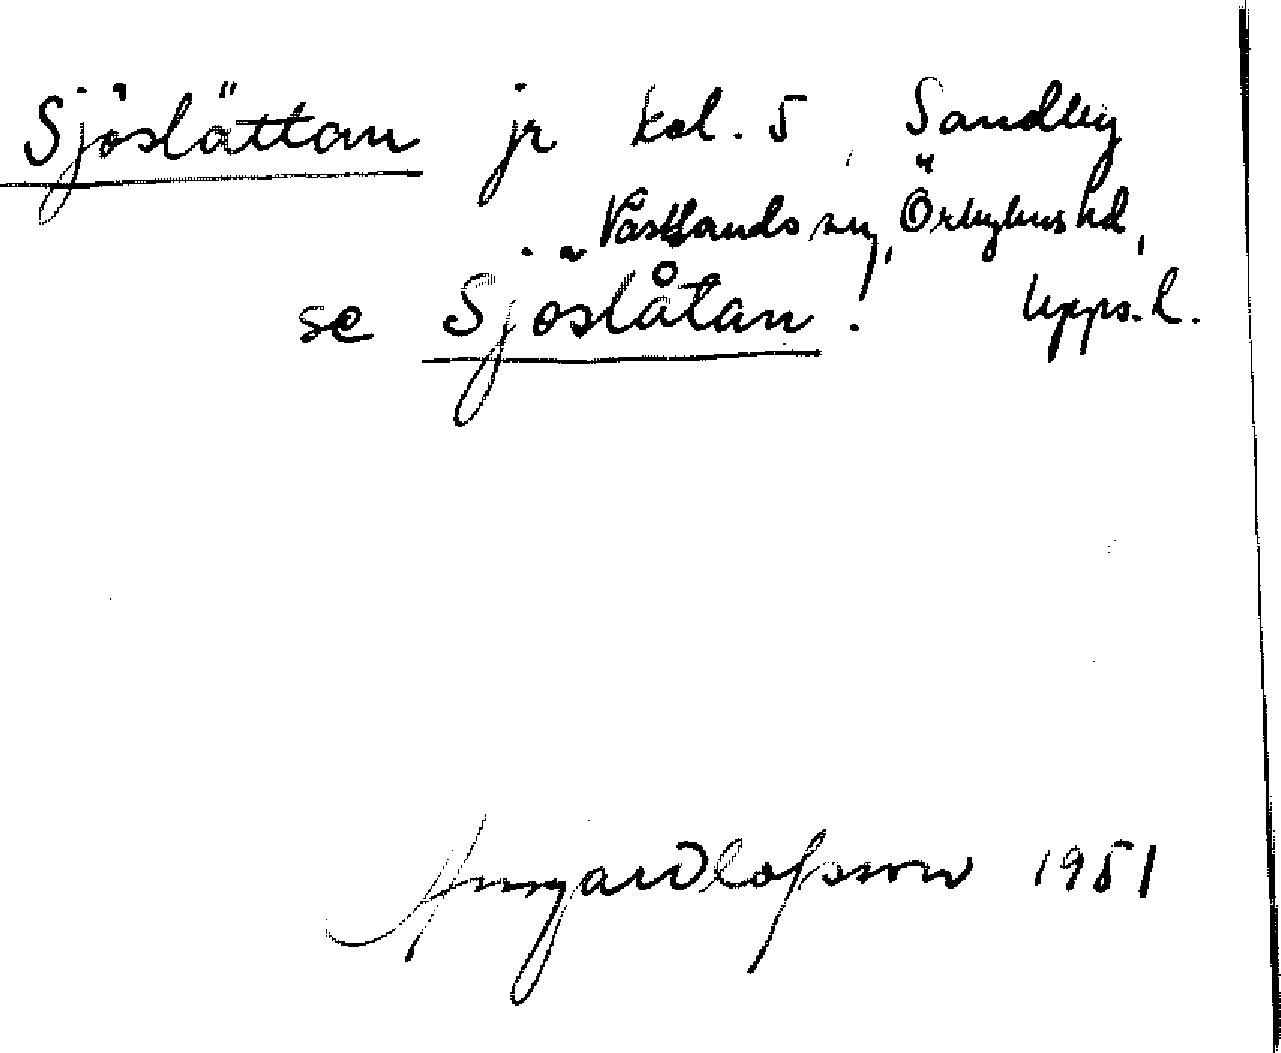 Sjöslättan jr kol. 5, Sandby
Västlands sn, Örbyhus hd,
se Sjöslåtan! Upps. l.
Ansgar Olofsson 1951